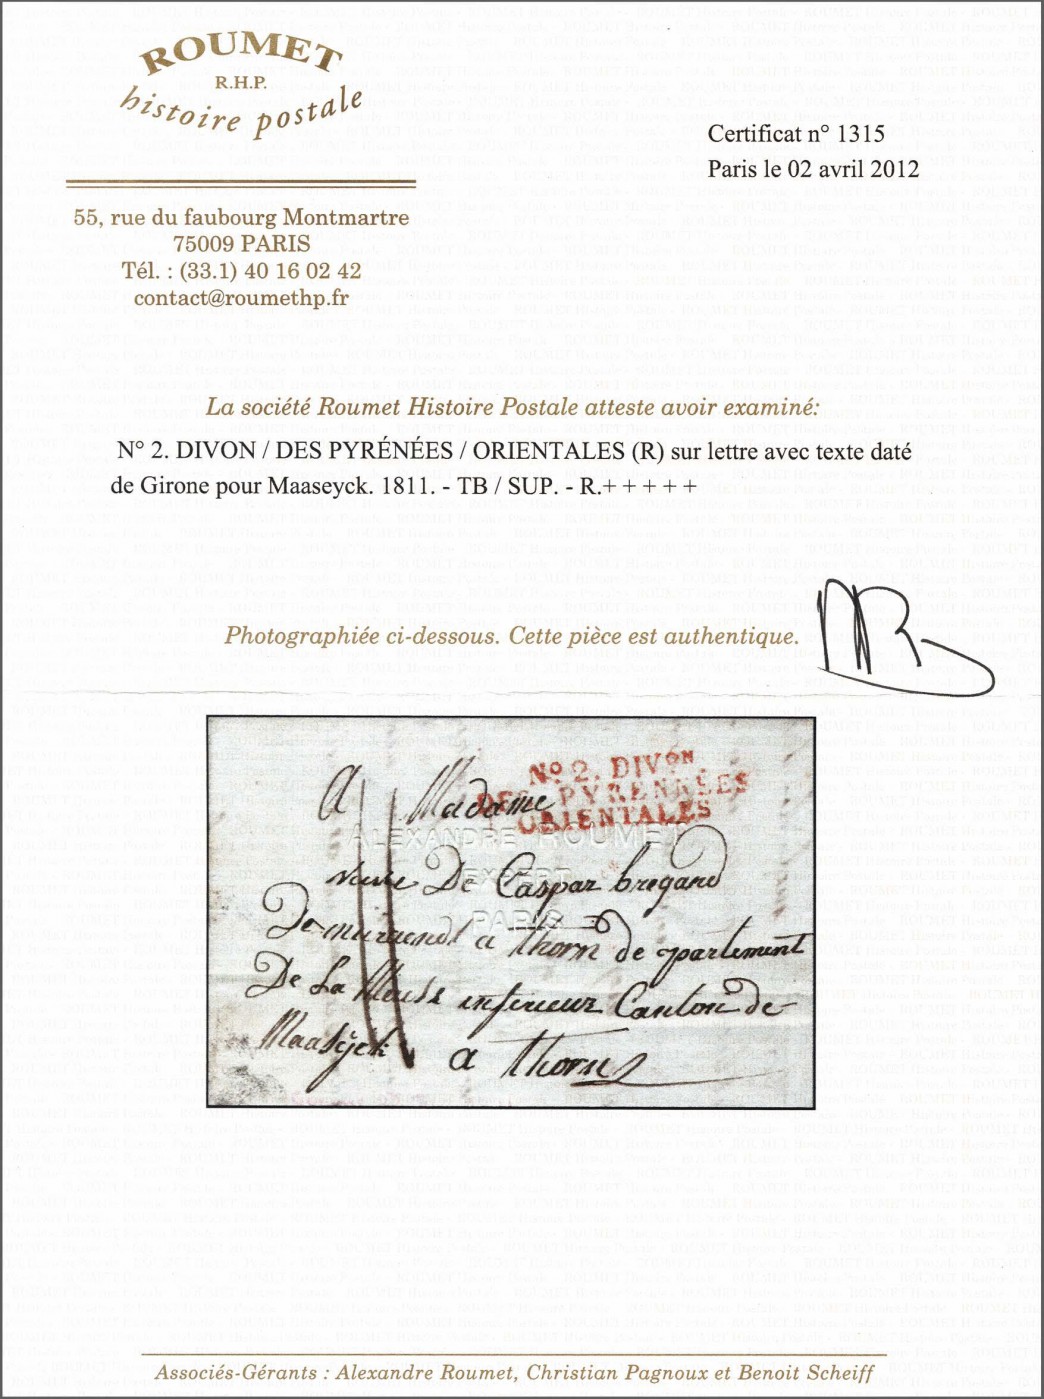 ROUMET
R.H.P.
histoire postale
Certificat n° 1315
Paris le 02 avril 2012
55, rue du faubourg Montmartre
75009 PARIS
Tél. : (33.1) 40 16 02 42
contact@roumethp.fr
La société Roumet Histoire Postale atteste avoir examiné:
N° 2. DIVON / DES PYRÉNÉES / ORIENTALES (R) sur lettre avec texte daté
de Girone pour Maaseyck. 1811. - TB / SUP. - R.+ + + + +
Photographiée ci-dessous. Cette pièce est authentique.
No 2. DIVon
DES PYRENNÉES
ORIENTALES
A Madame
ALEXANDRE ROUMET
EXPERT
PARIS
veuve De Caspar bregand
De a thorn de partement
De La Meuse inferieur Canton de
Maasÿck a thorn
Associés-Gérants : Alexandre Roumet, Christian Pagnoux et Benoit Scheiff